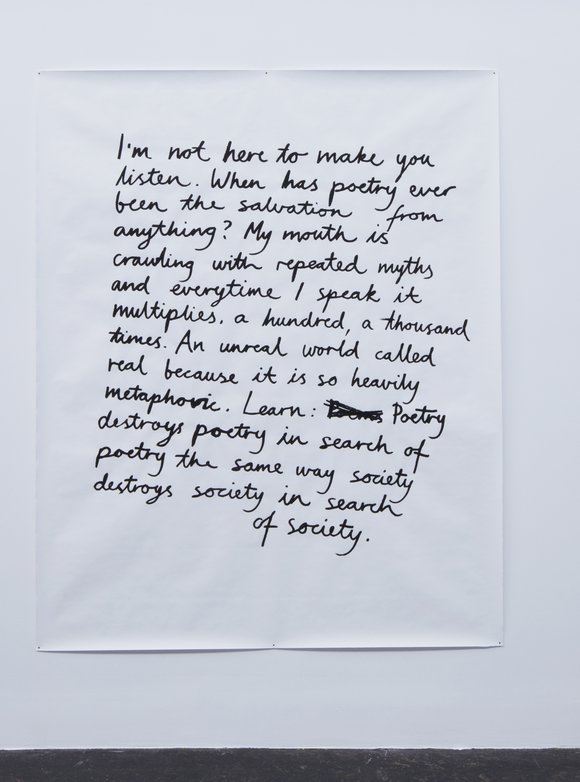 I'm not here to make you
listen. When has poetry ever
been the salvation from
anything? My mouth is
crawling with repeated myths
and everytime I speak it
multiplies. a hundred, a thousand
times. An unreal world called
real because it is so heavily
metaphoric. Learn: Poetry
destroys poetry in search of
poetry the same way society
destroys society in search
of society.